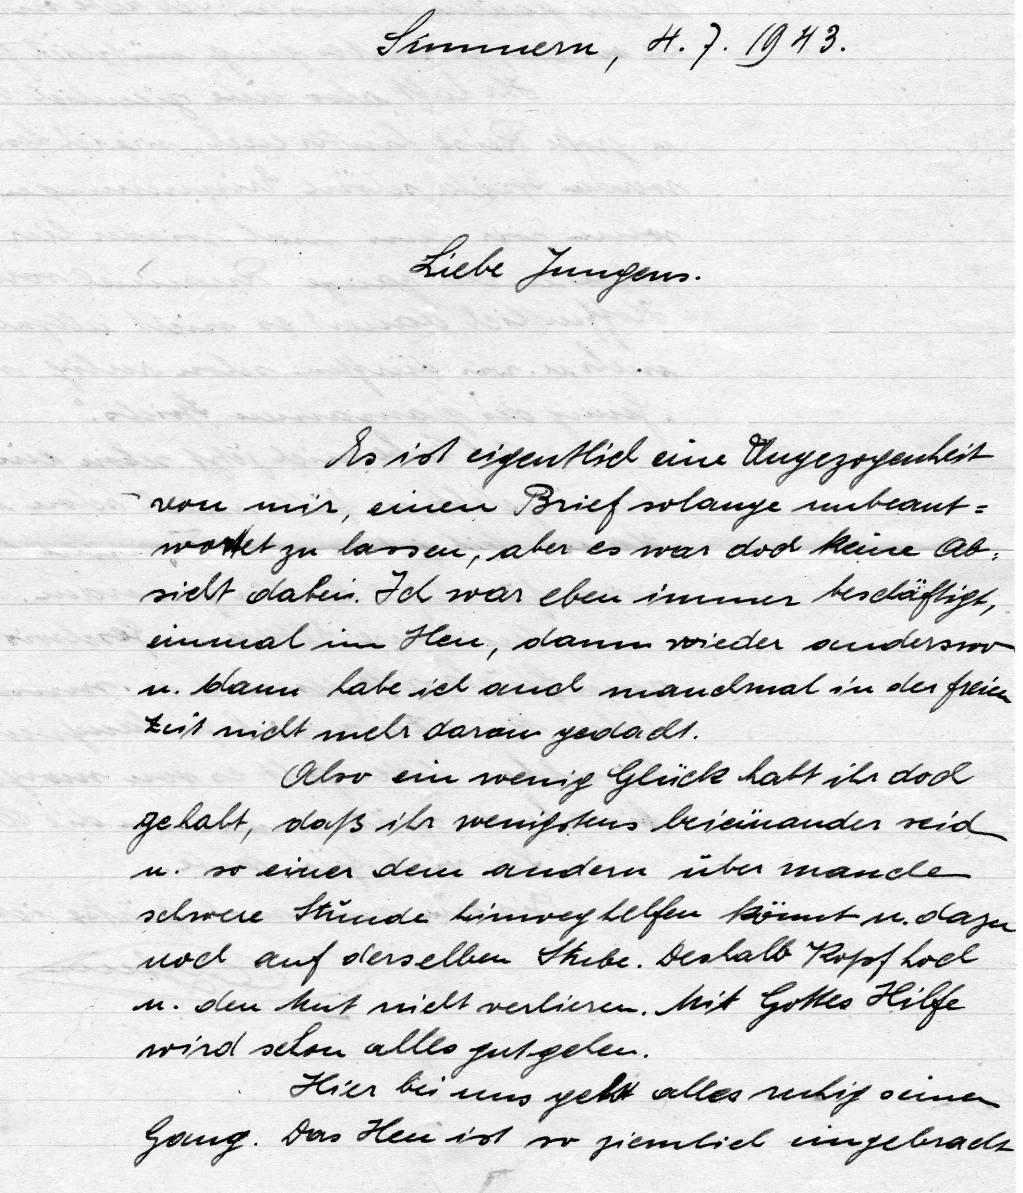 Simmern, 4. 7. 1943.
Liebe Jungens.
Es ist eigentlich eine Ungezogenheit
von mir, einen Brief solange unbeant=
wortet zu lassen, aber es war doch keine Ab=
sicht dabei. Ich war eben immer beschäftigt,
einmal im Heu, dann wieder anderswo
u. dann habe ich auch manchmal in der freien
Zeit nicht mehr daran gedacht.
Also ein wenig Glück habt ihr doch
gehabt, daß ihr wenigstens beieinander seid
u. so einer dem andern über manche
schwere Stunde hinweghelfen könnt u. dazu
noch auf derselben Stube. Deshalb Kopf hoch
u. den Mut nicht verlieren. Mit Gottes Hilfe
wird schon alles gutgehen.
Hier bei uns geht alles ruhig seinen
Gang. Das Heu ist so ziemlich eingebracht